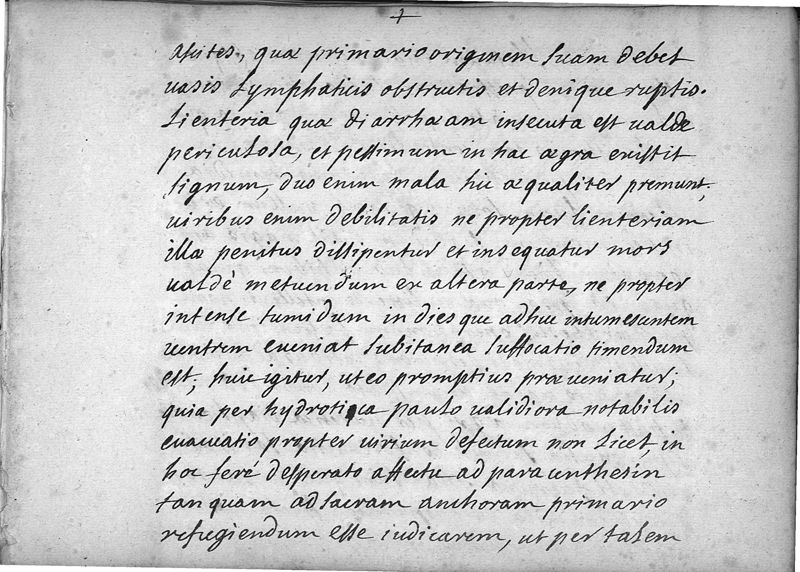 Ascites, quæ primario originem suam debet
vasis Lymphaticis obstructis et denique ruptis.
Lienteria quæ diarrhæam insecuta est valdè
periculosa, et pessimum in hac ægra existit
signum, duo enim mala hic æqualiter premunt;
viribus enim debilitatis ne propter lienteriam
illæ penitus dissipentur et insequatur mors
valdè metuendum ex altera parte, ne propter
intense tumidum in dies que adhuc intumescentem
ventrem eveniat subitanea suffocatio timendum
est; huic igitur, ut eo promptius præveniatur;
quia per hydrotica paulo validiora notabilis
evacuatio propter virium defectum non licet, in
hoc ferè desperato affectu ad paracenthesin
tanquam ad sacram anchoram primario
refugiendum esse iudicarem, ut per talem